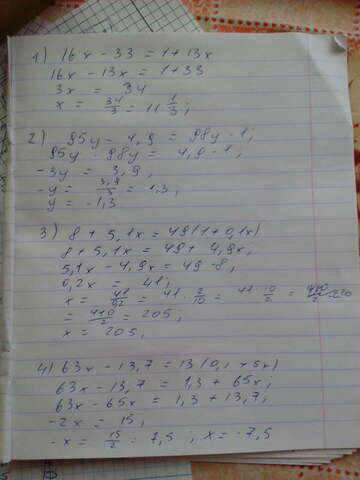 1) 16x - 33 = 1 + 13x
16x - 13x = 1 + 33
3x = 34
x = 34/3 = 11 1/3;
2) 95y - 4,9 = 98y - 1;
95y - 98y = 4,9 - 1,
-3y = 3,9,
-y = 3,9/3 = 1,3,
y = -1,3
3) 8 + 5,1x = 49(1 + 0,1x)
8 + 5,1x = 49 + 4,9x,
5,1x - 4,9x = 49 - 8,
0,2x = 41;
x = 41/0,2 = 41 : 2/10 = 41 · 10/2 =
= 410/2 = 205,
x = 205,
4) 63x - 13,7 = 13(0,1 + 5x)
63x - 13,7 = 1,3 + 65x;
63x - 65x = 1,3 + 13,7;
-2x = 15,
-x = 15/2 = 7,5 ; x = -7,5